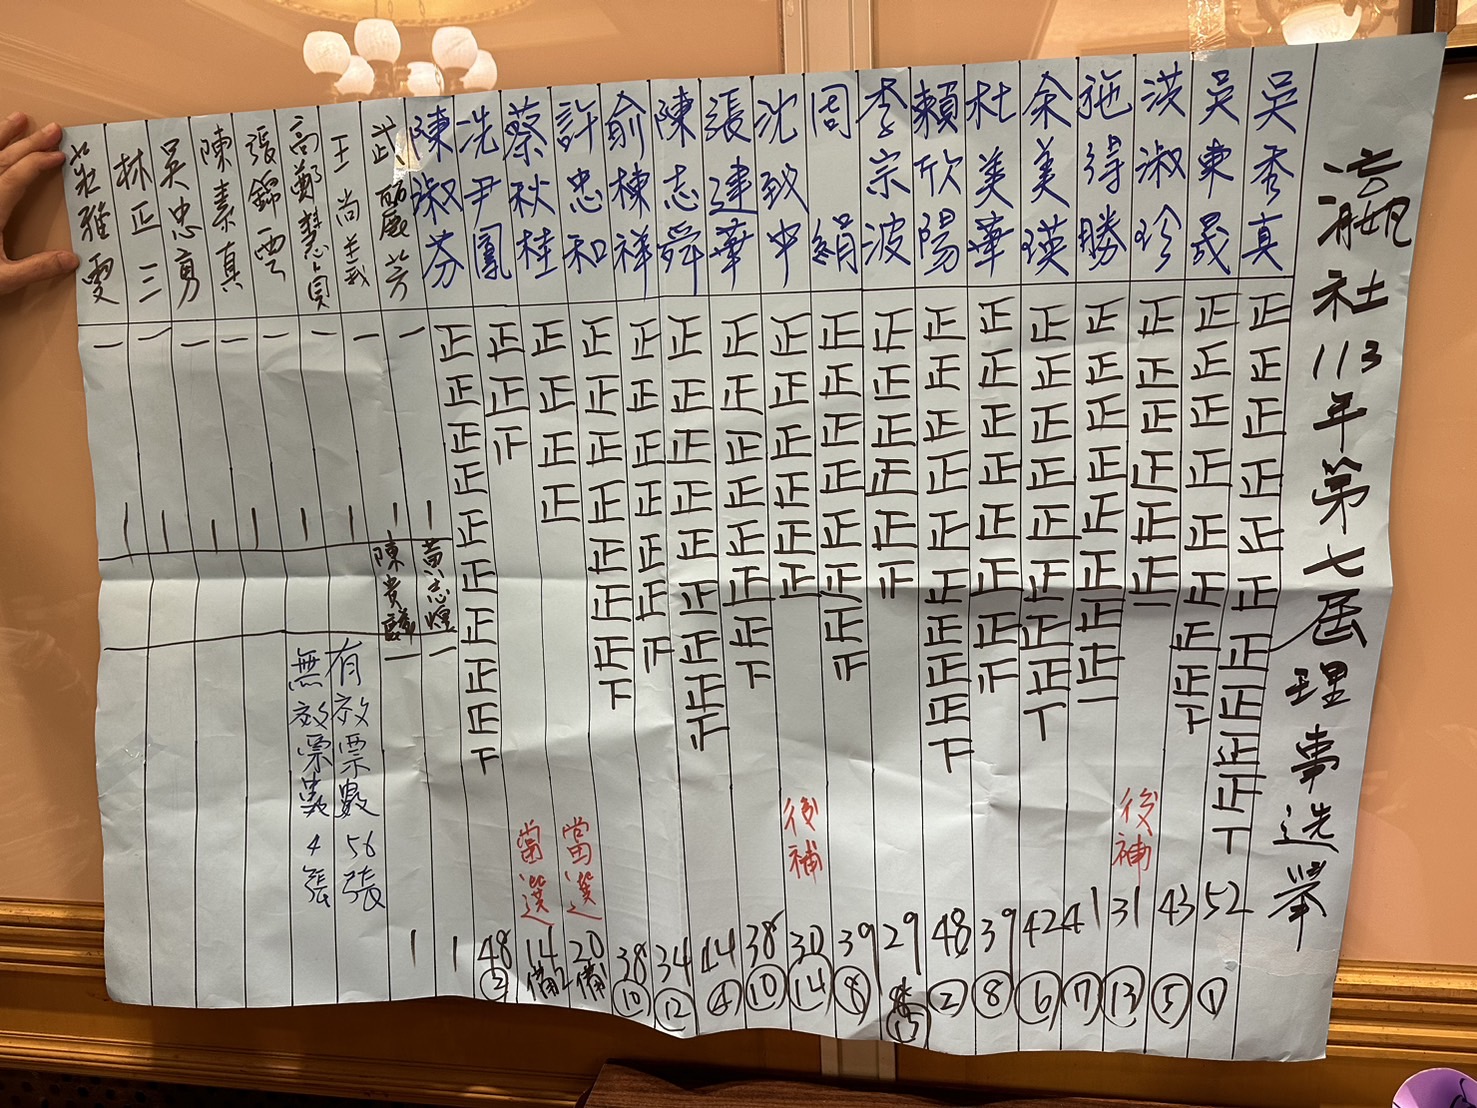 瀛社113年第七屆理事選舉
吳秀真 正正正正正正正正正正丅 52 ①
吳東晟 正正正正正正正正下 43 ⑤
洪淑珍 正正正正正正一 後補 31 ⑬
施得勝 正正正正正正正正一 41 ⑦
余美瑛 正正正正正正正正丅 42 ⑥
杜美華 正正正正正正正 39 ⑧
賴欣陽 正正正正正正正正正下 48 ②
李宗波 正正正正正 29 ⑮
周絹 正正正正正正正 39 ⑧
沈致中 正正正正正正 後補 30 ⑭
張建華 正正正正正正正下 38 ⑩
陳志舜 正正正正正正正正 44 ④
俞棟祥 正正正正正正 34 ⑫
許忠和 正正正正正正正下 38 ⑩
蔡秋桂 正正正正 當選 20 備1
冼尹鳳 正正 當選 14 備2
陳淑芬 正正正正正正正正正下 48 ②
武麗芳 一 1
王尚義 一 1
高鄭慧貞 一 1
張錦雲 一 1
陳素真 一 1
吳忠勇 一 1
林正三 一 1
雅雯 一 1
黃志煌 一 1
陳貴 一 1
有效票數56張
無效票數4張